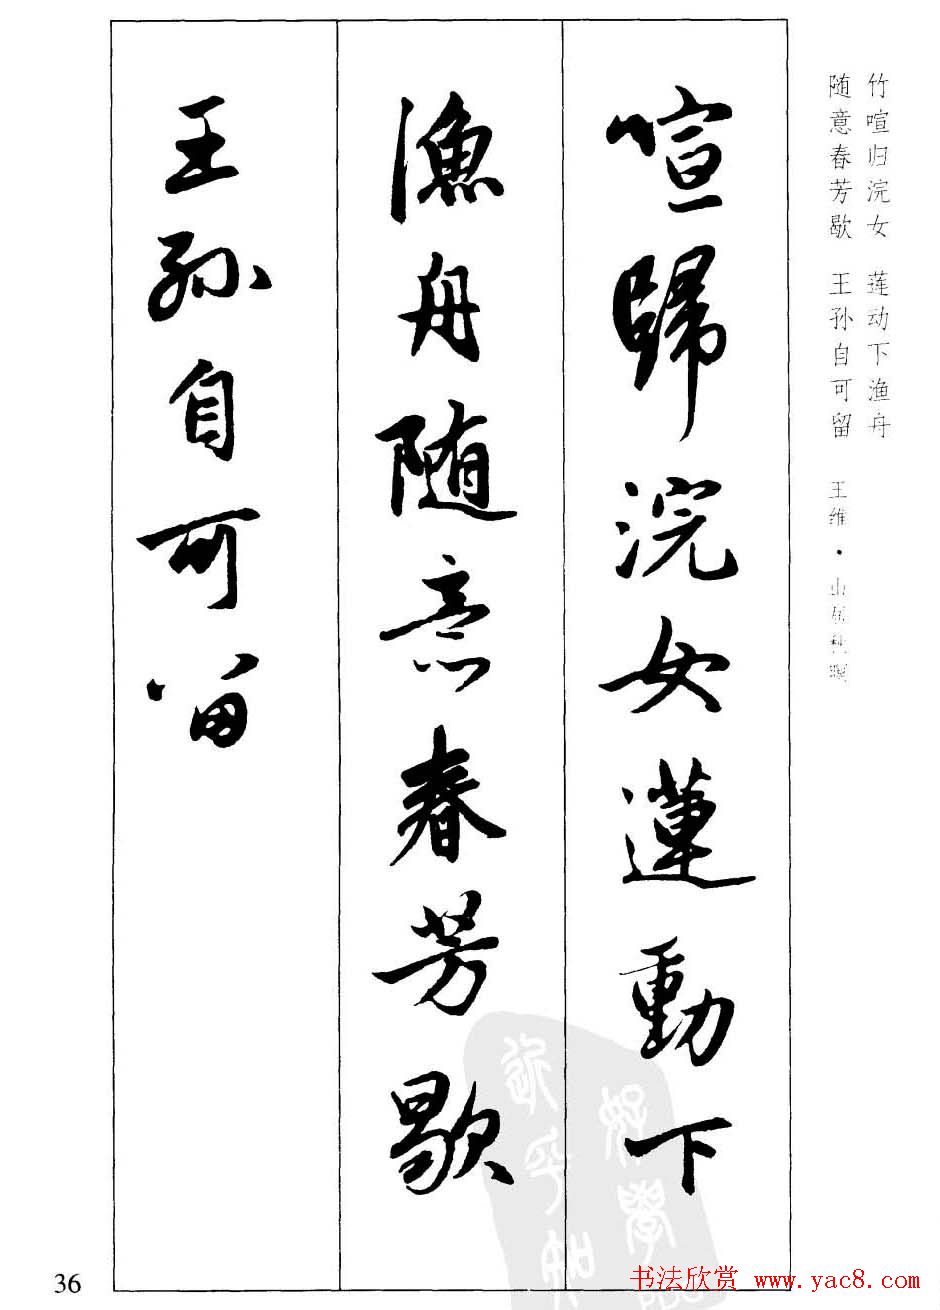 竹喧归浣女 莲动下渔舟
随意春芳歇 王孙自可留 王维·山居秋暝
喧歸浣女蓮動下
漁舟随意春芳歇
王孫自可留
36
书法欣赏 www.yac8.com